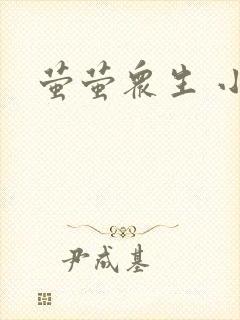 萤萤众生 小
尹成基